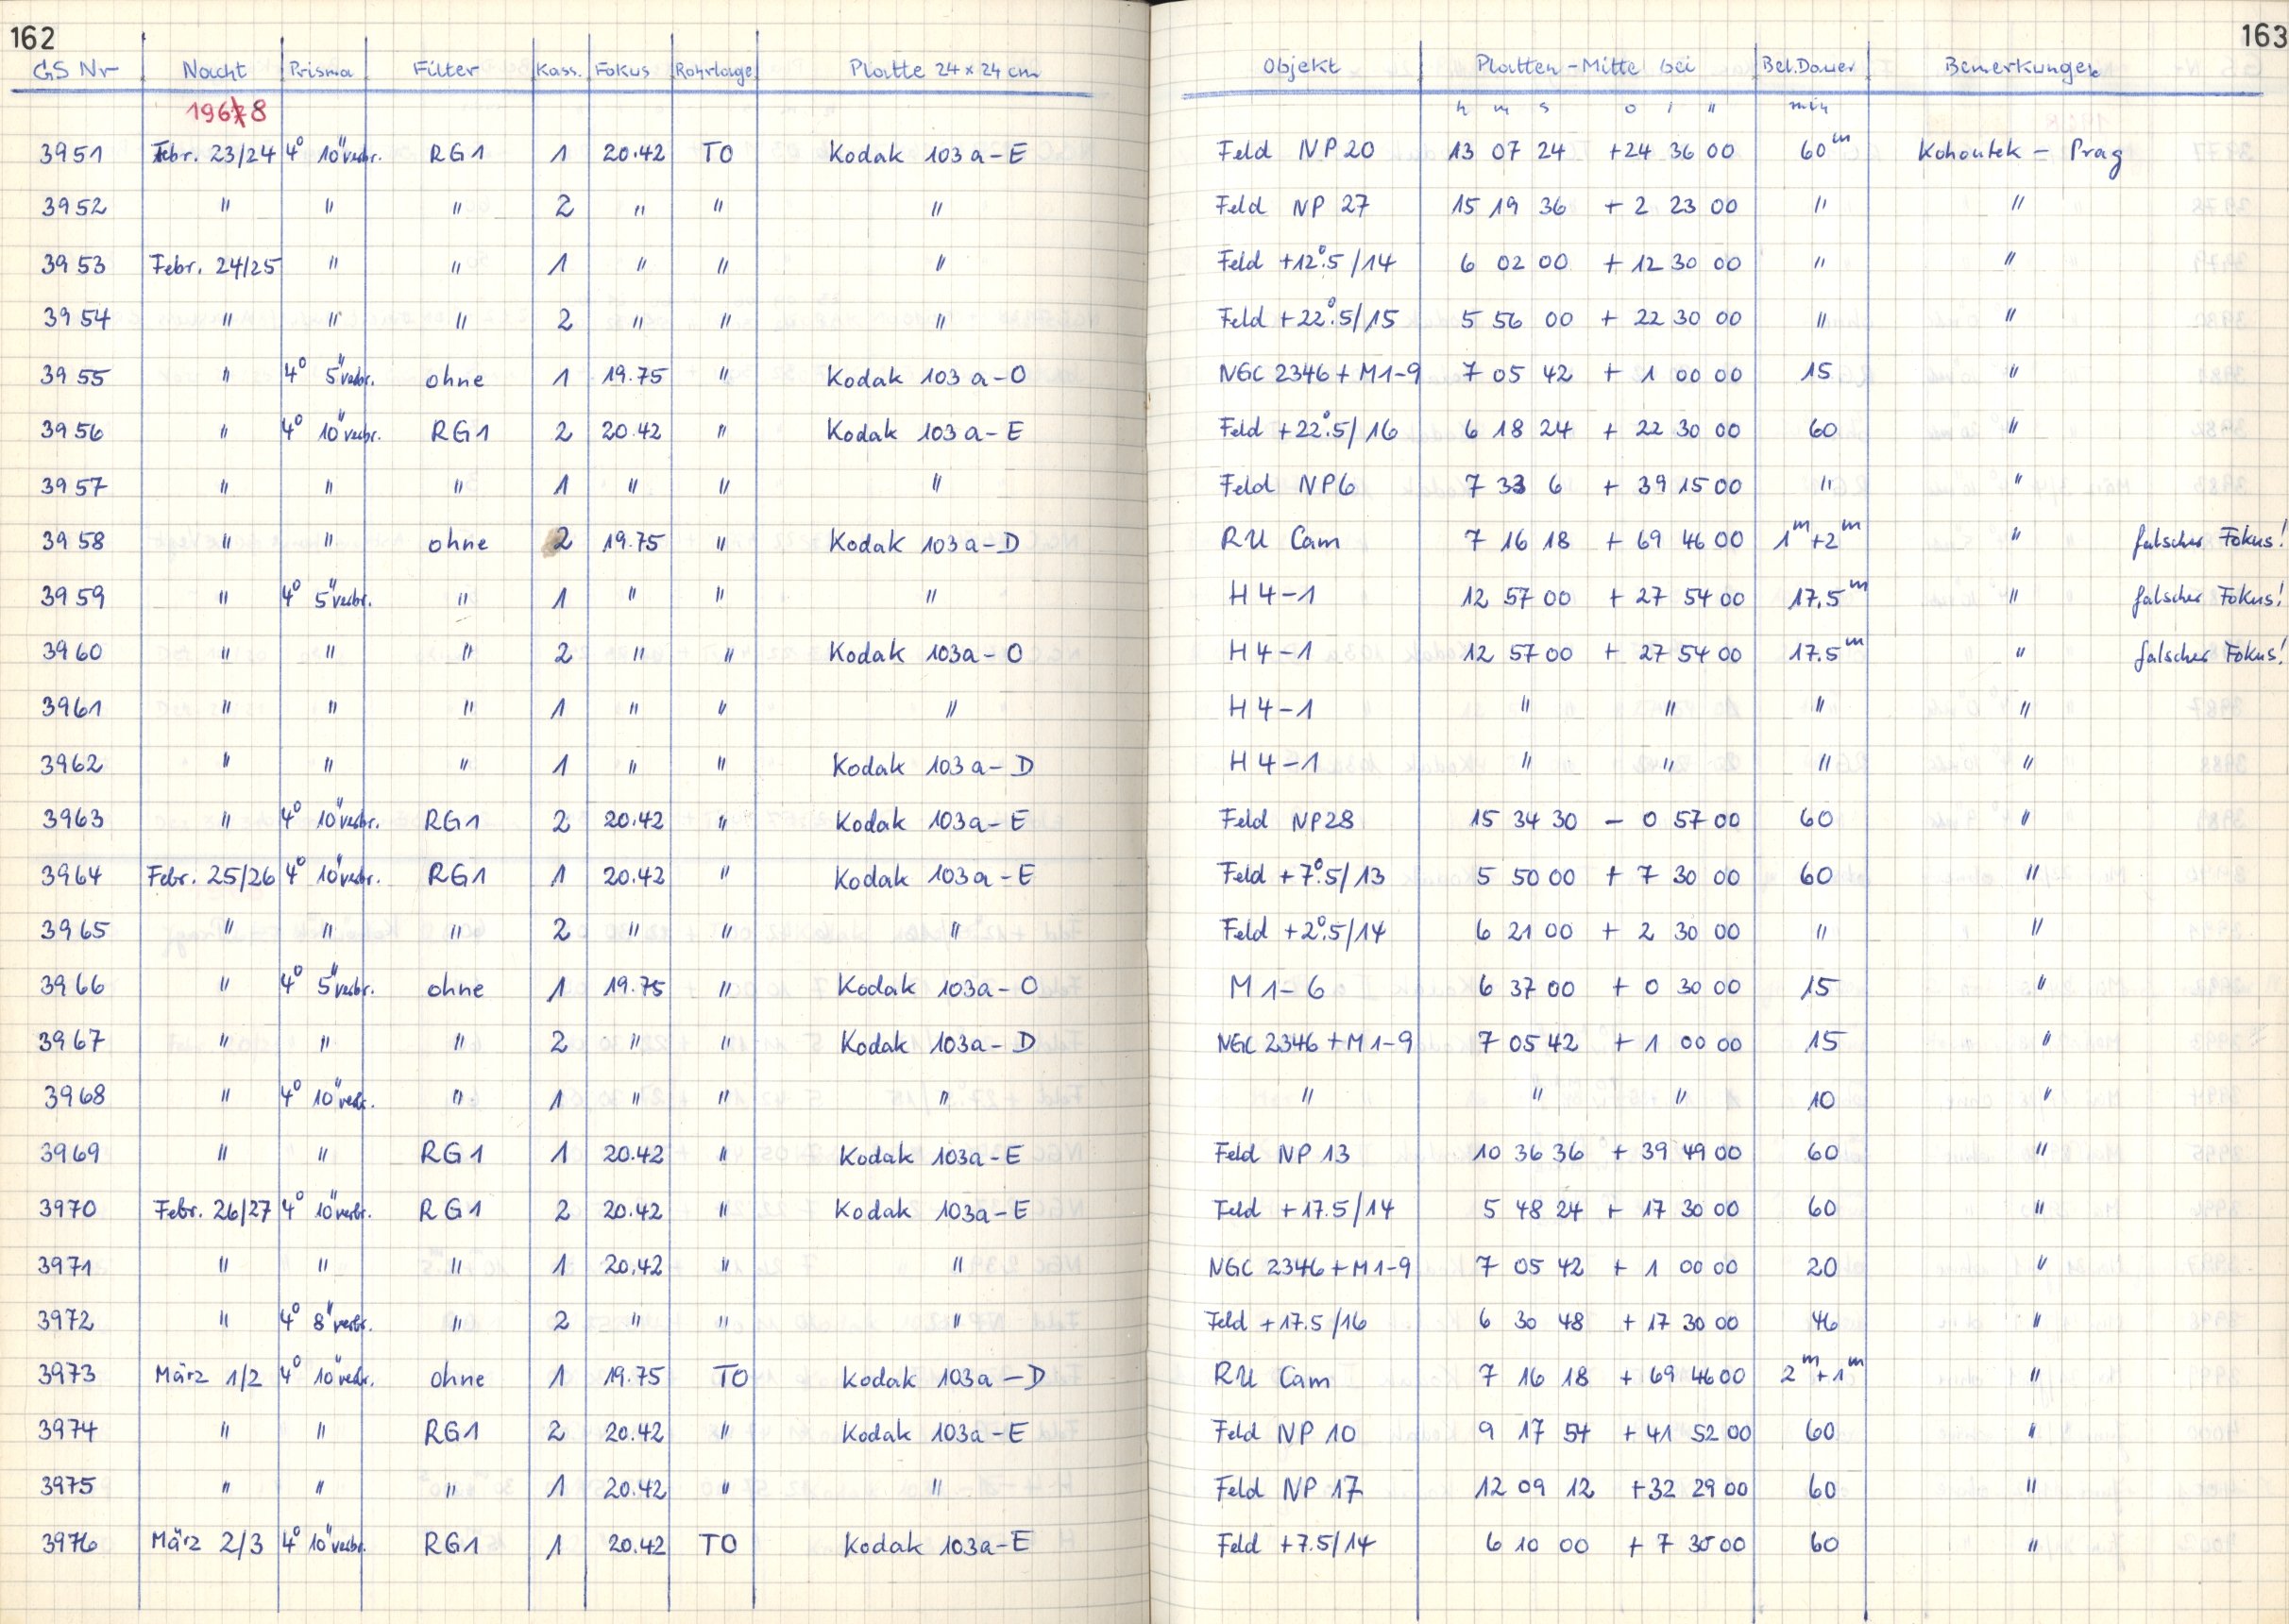 162
163
GS Nr Nacht Prisma Filter Kass. Fokus Rohrlage Platte 24 x 24 cm Objekt Platten-Mitte bei Bel.Dauer Bemerkungen
1968 h m s o ' " min
3951 Febr. 23/24 4° 10" verbr. RG1 1 20.42 TO Kodak 103a-E Feld NP 20 13 07 24 +24 36 00 60m Kohoutek - Prag
3952 " " " 2 " " " Feld NP 27 15 19 36 + 2 23 00 " "
3953 Febr. 24/25 " " 1 " " " Feld +12°.5/14 6 02 00 + 12 30 00 " "
3954 " " " 2 " " " Feld +22°.5/15 5 56 00 + 22 30 00 " "
3955 " 4° 5" verbr. ohne 1 19.75 " Kodak 103a-O NGC 2346 + M1-9 7 05 42 + 1 00 00 15 "
3956 " 4° 10" verbr. RG1 2 20.42 " Kodak 103a-E Feld +22°.5/16 6 18 24 + 22 30 00 60 "
3957 " " " 1 " " " Feld NP6 7 33 6 + 39 15 00 " "
3958 " " ohne 2 19.75 " Kodak 103a-D RU Cam 7 16 18 + 69 46 00 1m+2m " falscher Fokus!
3959 " 4° 5" verbr. " 1 " " " H4-1 12 57 00 + 27 54 00 17.5m " falscher Fokus!
3960 " " " 2 " " Kodak 103a-O H4-1 12 57 00 + 27 54 00 17.5m " falscher Fokus!
3961 " " " 1 " " " H4-1 " " " "
3962 " " " 1 " " Kodak 103a-D H4-1 " " " "
3963 " 4° 10" verbr. RG1 2 20.42 " Kodak 103a-E Feld NP28 15 34 30 - 0 57 00 60 "
3964 Febr. 25/26 4° 10" verbr. RG1 1 20.42 " Kodak 103a-E Feld +7°.5/13 5 50 00 + 7 30 00 60 "
3965 " " " 2 " " " Feld +2°.5/14 6 21 00 + 2 30 00 " "
3966 " 4° 5" verbr. ohne 1 19.75 " Kodak 103a-O M1-6 6 37 00 + 0 30 00 15 "
3967 " " " 2 " " Kodak 103a-D NGC 2346 + M1-9 7 05 42 + 1 00 00 15 "
3968 " 4° 10" verbr. " 1 " " " " " " 10 "
3969 " " RG1 1 20.42 " Kodak 103a-E Feld NP 13 10 36 36 + 39 49 00 60 "
3970 Febr. 26/27 4° 10" verbr. RG1 2 20.42 " Kodak 103a-E Feld +17.5/14 5 48 24 + 17 30 00 60 "
3971 " " " 1 20.42 " " NGC 2346 + M1-9 7 05 42 + 1 00 00 20 "
3972 " 4° 8" verbr. " 2 " " " Feld +17.5/16 6 30 48 + 17 30 00 46 "
3973 März 1/2 4° 10" verbr. ohne 1 19.75 TO Kodak 103a-D RU Cam 7 16 18 + 69 46 00 2m+1m "
3974 " " RG1 2 20.42 " Kodak 103a-E Feld NP 10 9 17 54 + 41 52 00 60 "
3975 " " " 1 20.42 " " Feld NP 17 12 09 12 +32 29 00 60 "
3976 März 2/3 4° 10" verbr. RG1 1 20.42 TO Kodak 103a-E Feld +7.5/14 6 10 00 + 7 30 00 60 "